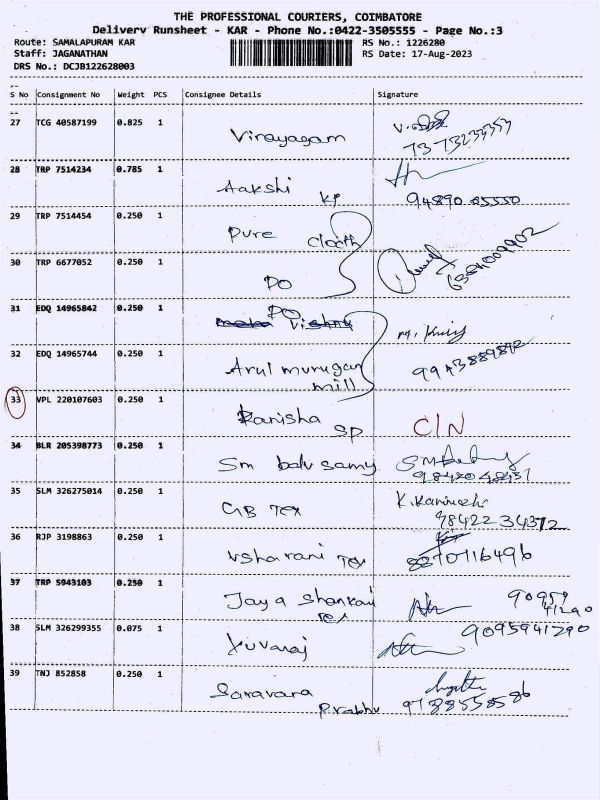 THE PROFESSIONAL COURIERS, COIMBATORE
Delivery Runsheet - KAR - Phone No.:0422-3505555 - Page No.:3
Route: SAMALAPURAM KAR
RS No.: 1226280
Staff: JAGANATHAN
RS Date: 17-Aug-2023
DRS No.: DCJB122628003
S No Consignment No Weight PCS Consignee Details Signature
27 TCG 40587199 0.825 1 Vinayagam
28 TRP 7514234 0.785 1 Aakshi KP 94890 05550
29 TRP 7514454 0.250 1 Pure Cloath
30 TRP 6677052 0.250 1 DO
31 EDQ 14965842 0.250 1 DO
32 EDQ 14965744 0.250 1 Arul murugan mill 9943889892
33 VPL 220107603 0.250 1 Kanisha SP C/N
34 BLR 205398773 0.250 1 Sm balu samy
35 SLM 326275014 0.250 1 GB Tex K. Kanimozhi
98422 34372
36 RJP 3198863 0.250 1 Usha rani Tex
37 TRP 5943103 0.250 1 Jaya Shankari Tex 90959 41290
38 SLM 326299355 0.075 1 Yuvaraj 9095941290
39 TNJ 852858 0.250 1 Saravara Prabhu